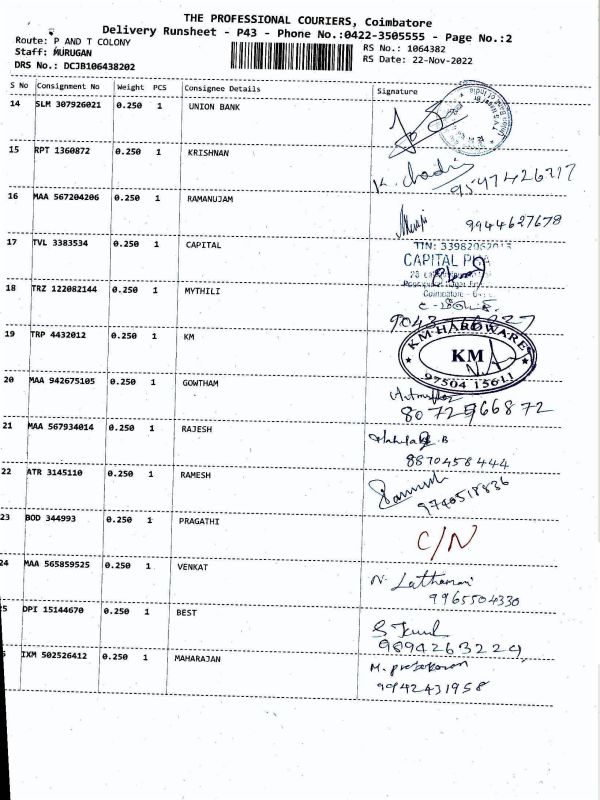 THE PROFESSIONAL COURIERS, Coimbatore
Delivery Runsheet - P43 - Phone No.:0422-3505555 - Page No.:2
Route: P AND T COLONY
RS No.: 1064382
Staff: MURUGAN
RS Date: 22-Nov-2022
DRS No.: DCJB106438202
S No Consignment No Weight PCS Consignee Details Signature
14 SLM 307926021 0.250 1 UNION BANK
15 RPT 1360872 0.250 1 KRISHNAN
9547426777
16 MAA 567204206 0.250 1 RAMANUJAM
9944627678
17 TVL 3383534 0.250 1 CAPITAL
TIN: 33982062
CAPITAL
Coimbatore
18 TRZ 122082144 0.250 1 MYTHILI
19 TRP 4432012 0.250 1 KM
KM HARDWARE
KM
97504 15611
20 MAA 942675105 0.250 1 GOWTHAM
8072566872
21 MAA 567934014 0.250 1 RAJESH
8870458444
22 ATR 3145110 0.250 1 RAMESH
9740518836
23 BOD 344993 0.250 1 PRAGATHI
C/N
24 MAA 565859525 0.250 1 VENKAT
N. Lathamani
9965504330
5 DPI 15144670 0.250 1 BEST
9094263224
IXM 502526412 0.250 1 MAHARAJAN
M. prabakaran
9942431958